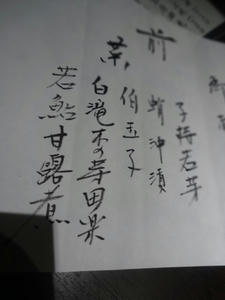 子持若芽
前 蛸沖漬
菜 玉子
白滝木の芽田楽
若鮎甘露煮